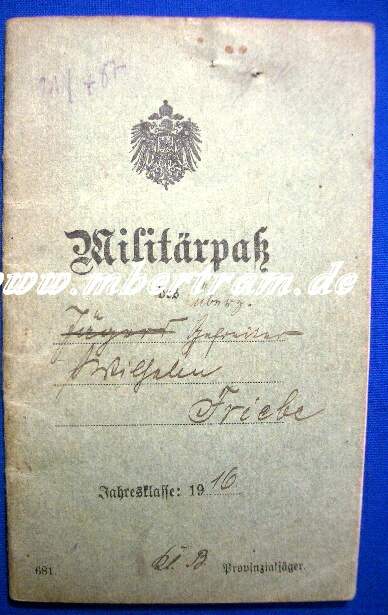 Militärpaß
www.mbertram.de
des überz.
Jäger Gefreiter
Wilhelm
Friebe
Jahresklasse: 1916
Kl. B
681. Provinzialjäger.